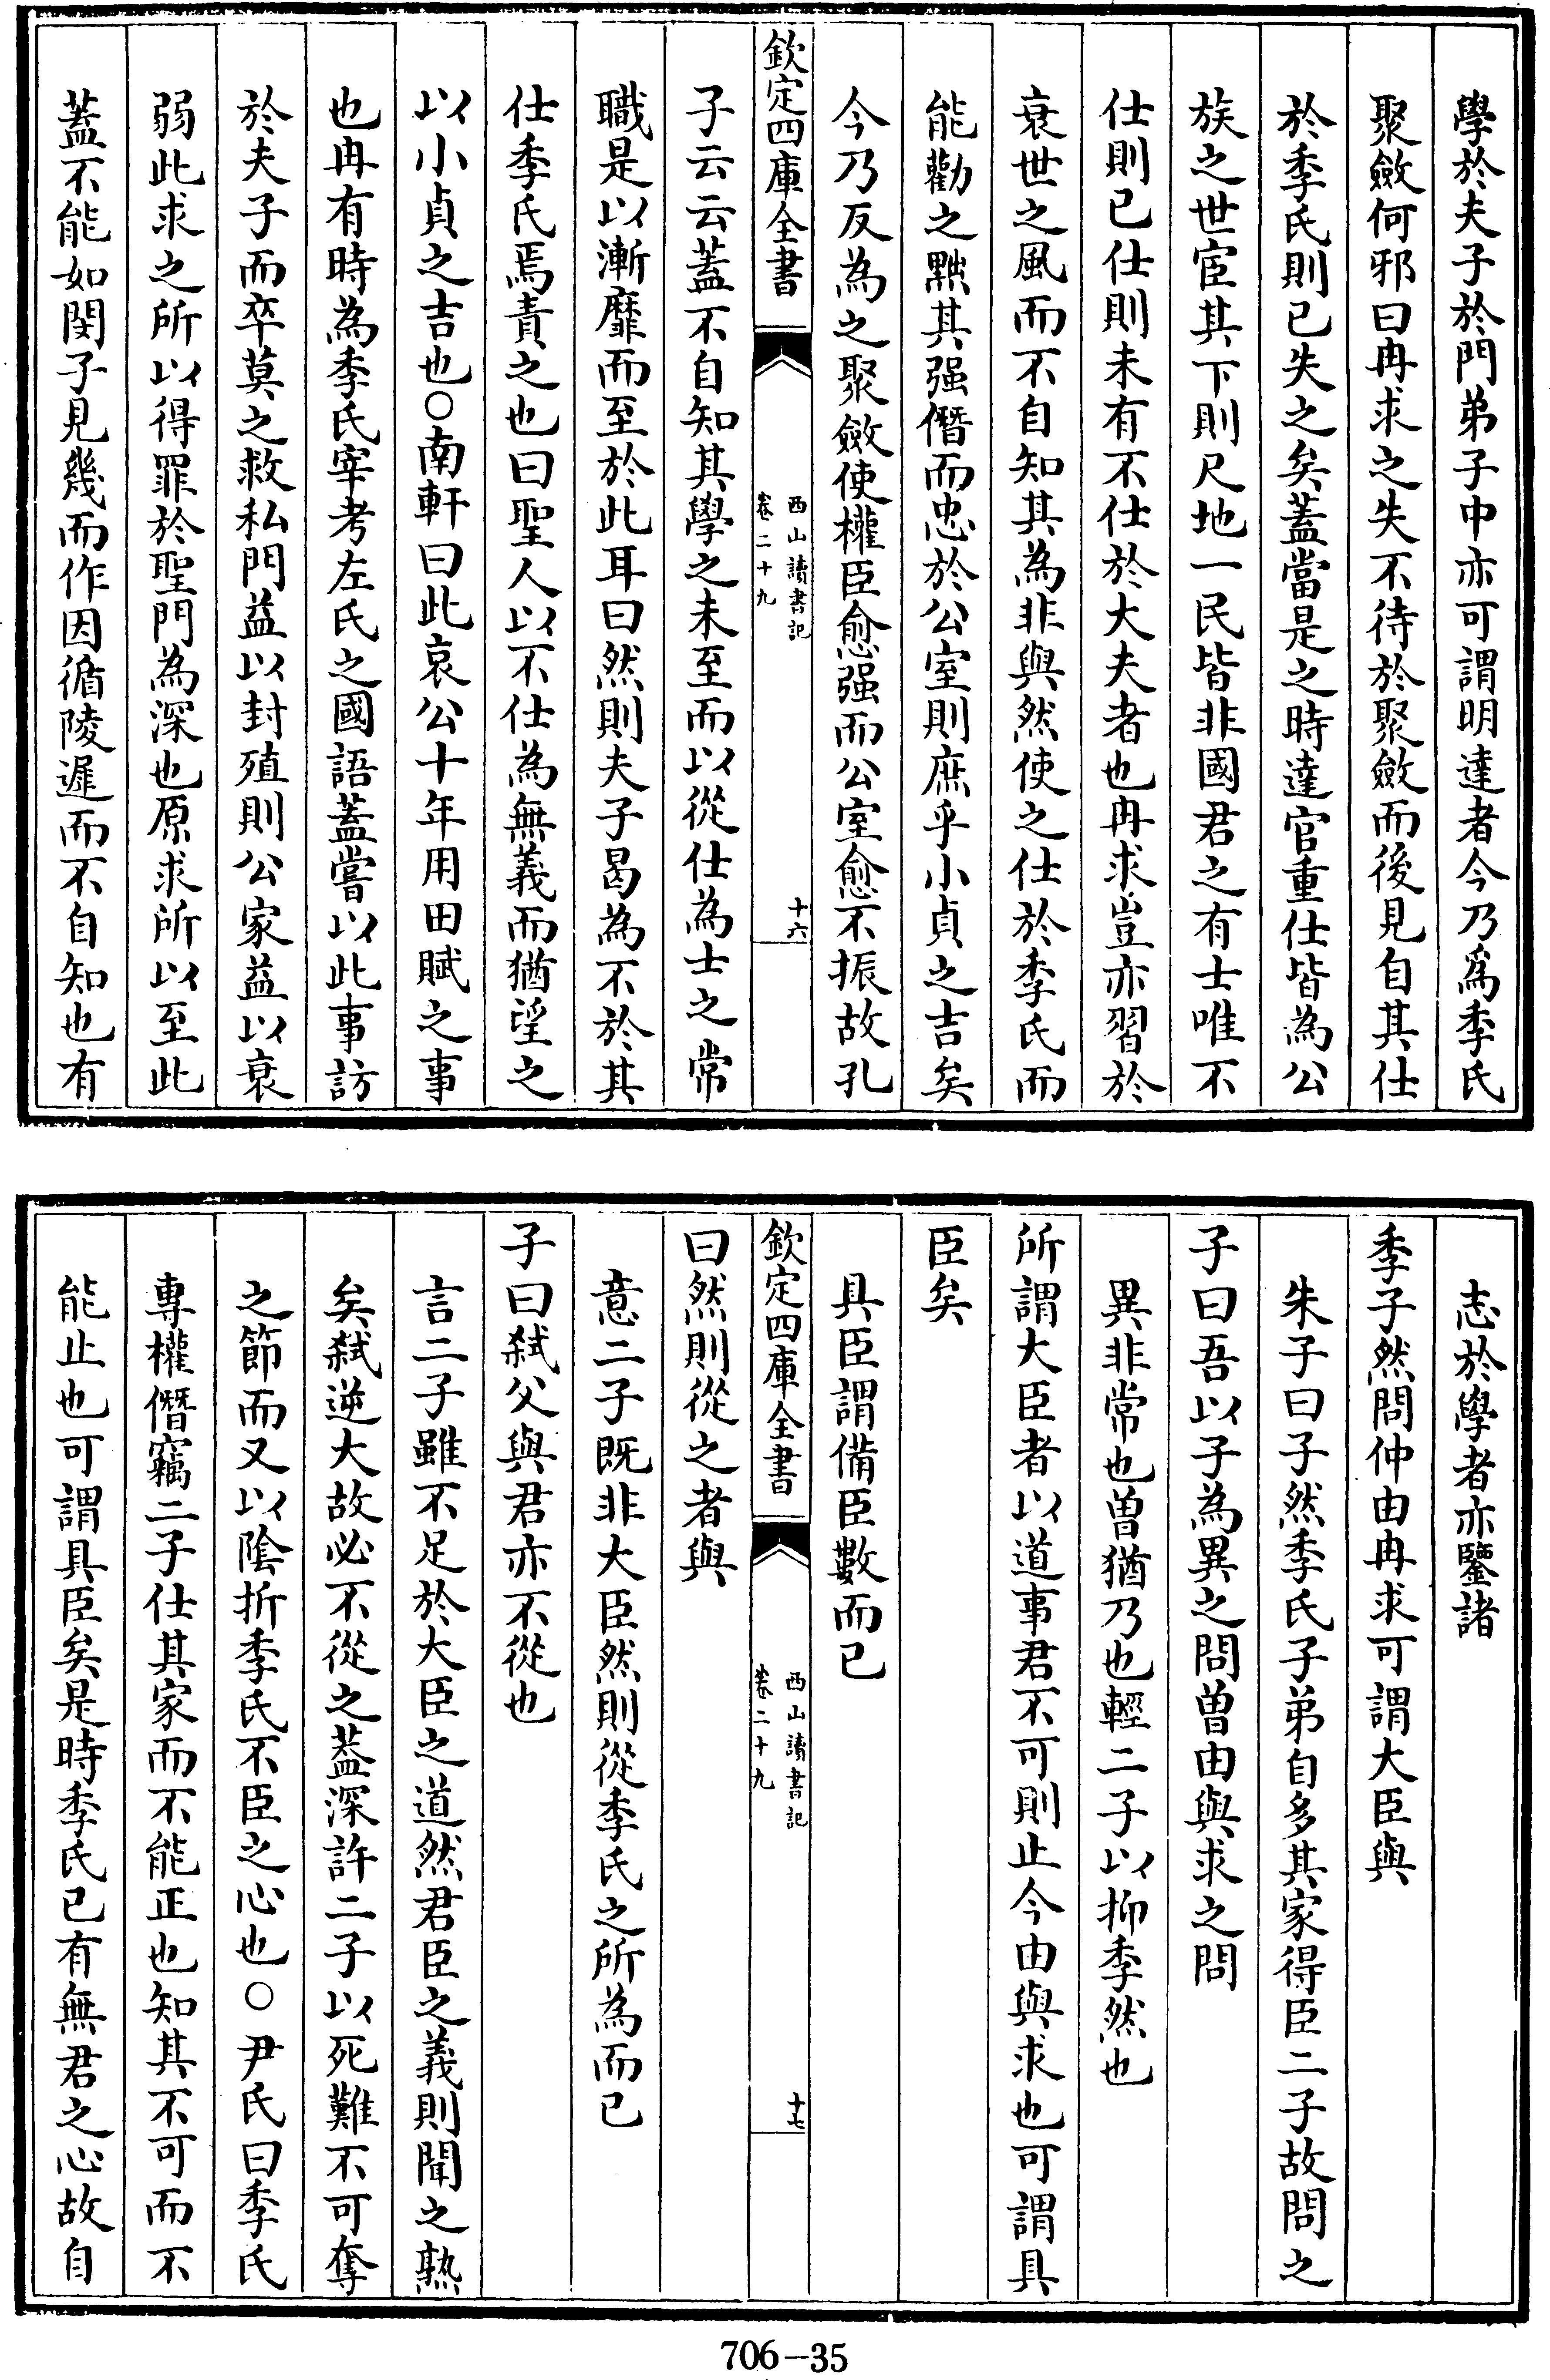 學於夫子於門弟子中亦可謂明達者今乃爲季氏
聚斂何邪曰冉求之失不待於聚斂而後見自其仕
於季氏則已失之矣蓋當是之時達官重仕皆為公
族之世宦其下則尺地一民皆非國君之有士唯不
仕則已仕則未有不仕於大夫者也冉求豈亦習於
衰世之風而不自知其為非與然使之仕於季氏而
能勸之黜其强僭而忠於公室則庶乎小貞之吉矣
今乃反為之聚斂使權臣愈强而公室愈不振故孔
欽定四庫全書
西山讀書記
卷二十九
十六
子云云蓋不自知其學之未至而以從仕為士之常
職是以漸靡而至於此耳曰然則夫子曷為不於其
仕季氏焉責之也曰聖人以不仕為無義而猶望之
以小貞之吉也○南軒曰此哀公十年用田賦之事
也冉有時為季氏宰考左氏之國語蓋嘗以此事訪
於夫子而卒莫之救私門益以封殖則公家益以衰
弱此求之所以得罪於聖門為深也原求所以至此
蓋不能如閔子見幾而作因循陵遲而不自知也有
志於學者亦鑒諸
季子然問仲由冉求可謂大臣與
朱子曰子然季氏子弟自多其家得臣二子故問之
子曰吾以子為異之問曾由與求之問
異非常也曾猶乃也輕二子以抑季然也
所謂大臣者以道事君不可則止今由與求也可謂具
臣矣
具臣謂備臣數而已
欽定四庫全書
西山讀書記
卷二十九
十七
曰然則從之者與
意二子既非大臣然則從季氏之所為而已
子曰弑父與君亦不從也
言二子雖不足於大臣之道然君臣之義則聞之熟
矣弑逆大故必不從之蓋深許二子以死難不可奪
之節而又以陰折季氏不臣之心也○尹氏曰季氏
專權僭竊二子仕其家而不能正也知其不可而不
能止也可謂具臣矣是時季氏已有無君之心故自
706-35